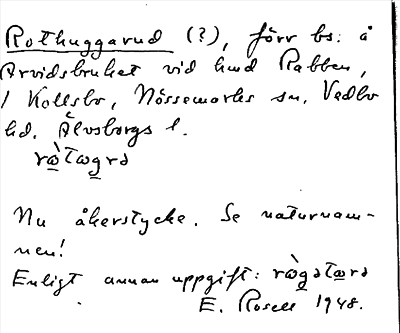 Rothuggarud (?), förr bs: å
Arvidsbruket vid hmd Rabben,
/ Kollsbo, Nössemarks sn, Vedbo
hd. Älvsborgs l.
Nu åkerstycke. Se naturnam-
nen!
Enligt annan uppgift:
E. Rosell 1948.